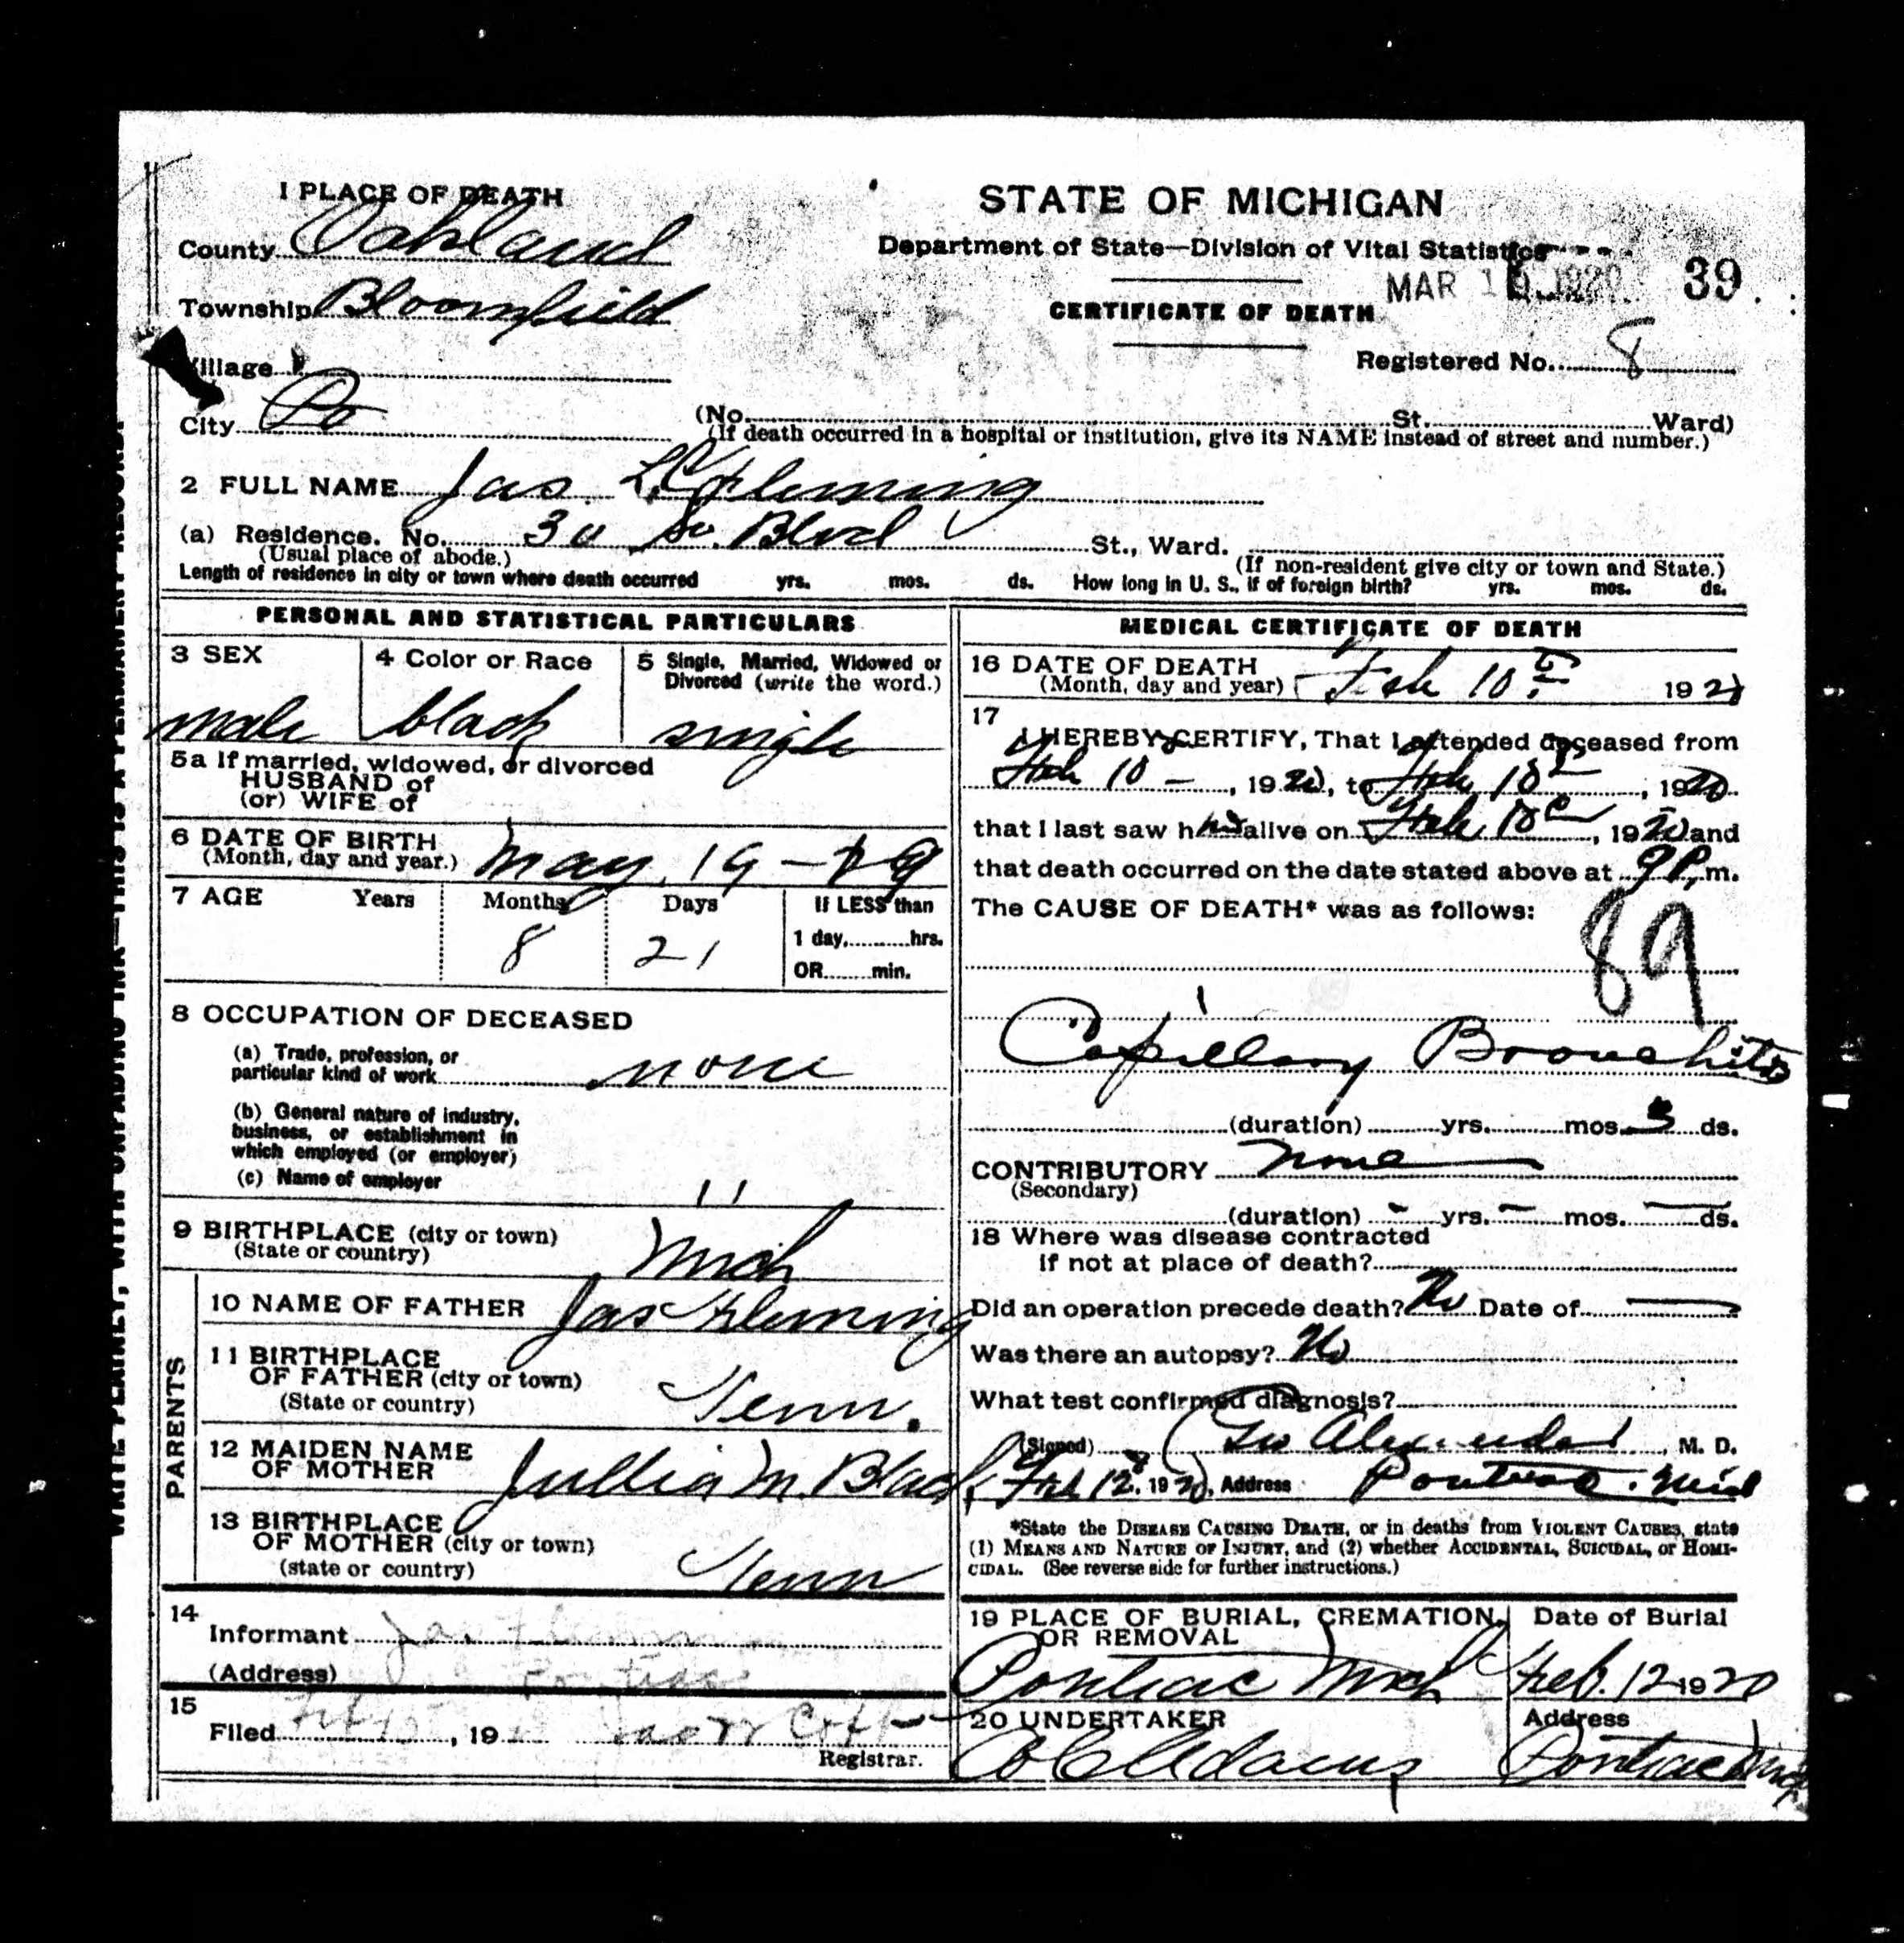 1 PLACE OF DEATH
STATE OF MICHIGAN
County Oakland
Department of State—Division of Vital Statistics
MAR 1 1920 39
Township Bloomfield
CERTIFICATE OF DEATH
Village
Registered No. 8
City Po (No. St. Ward)
(If death occurred in a hospital or institution, give its NAME instead of street and number.)
2 FULL NAME Jas. L.C. Fleming
(a) Residence. No. 30 So. Blvd St., Ward.
(Usual place of abode.) (If non-resident give city or town and State.)
Length of residence in city or town where death occurred yrs. mos. ds. How long in U. S., if of foreign birth? yrs. mos. ds.
PERSONAL AND STATISTICAL PARTICULARS
3 SEX 4 Color or Race 5 Single, Married, Widowed or
Divorced (write the word.)
male black single
5a If married, widowed, or divorced
HUSBAND of
(or) WIFE of
6 DATE OF BIRTH
(Month, day and year.) May 19 –
7 AGE Years Months Days If LESS than
8 21 1 day, hrs.
OR min.
8 OCCUPATION OF DECEASED
(a) Trade, profession, or
particular kind of work none
(b) General nature of industry,
business, or establishment in
which employed (or employer)
(c) Name of employer
11
9 BIRTHPLACE (city or town)
(State or country) Mich
PARENTS
10 NAME OF FATHER Jas Fleming
11 BIRTHPLACE
OF FATHER (city or town)
(State or country) Tenn.
12 MAIDEN NAME
OF MOTHER Jullia M. Black
13 BIRTHPLACE
OF MOTHER (city or town)
(state or country) Tenn
14
Informant Jas Fleming
(Address) Pontiac
15
Filed Feb , 19
Registrar.
MEDICAL CERTIFICATE OF DEATH
16 DATE OF DEATH
(Month, day and year) Feb 10 192
17
I HEREBY CERTIFY, That I attended deceased from
Feb 10 – , 1920, to Feb 10 , 1920
that I last saw h alive on Feb 10 , 1920 and
that death occurred on the date stated above at 9 P. m.
The CAUSE OF DEATH* was as follows:
89
Capillary Bronchitis
(duration) yrs. mos. 3 ds.
CONTRIBUTORY none
(Secondary)
(duration) – yrs. – mos. – ds.
18 Where was disease contracted
if not at place of death?
Did an operation precede death? No Date of
Was there an autopsy? No
What test confirmed diagnosis?
(Signed) , M. D.
Feb 12, 1920, Address Pontiac. Mich
*State the DISEASE CAUSING DEATH, or in deaths from VIOLENT CAUSES, state
(1) MEANS AND NATURE OF INJURY, and (2) whether ACCIDENTAL, SUICIDAL, or HOMI-
CIDAL. (See reverse side for further instructions.)
19 PLACE OF BURIAL, CREMATION, Date of Burial
OR REMOVAL
Pontiac Mich Feb. 12 1920
20 UNDERTAKER Address
Adams Pontiac Mich
WRITE PLAINLY, WITH UNFADING INK—THIS IS A PERMANENT RECORD.